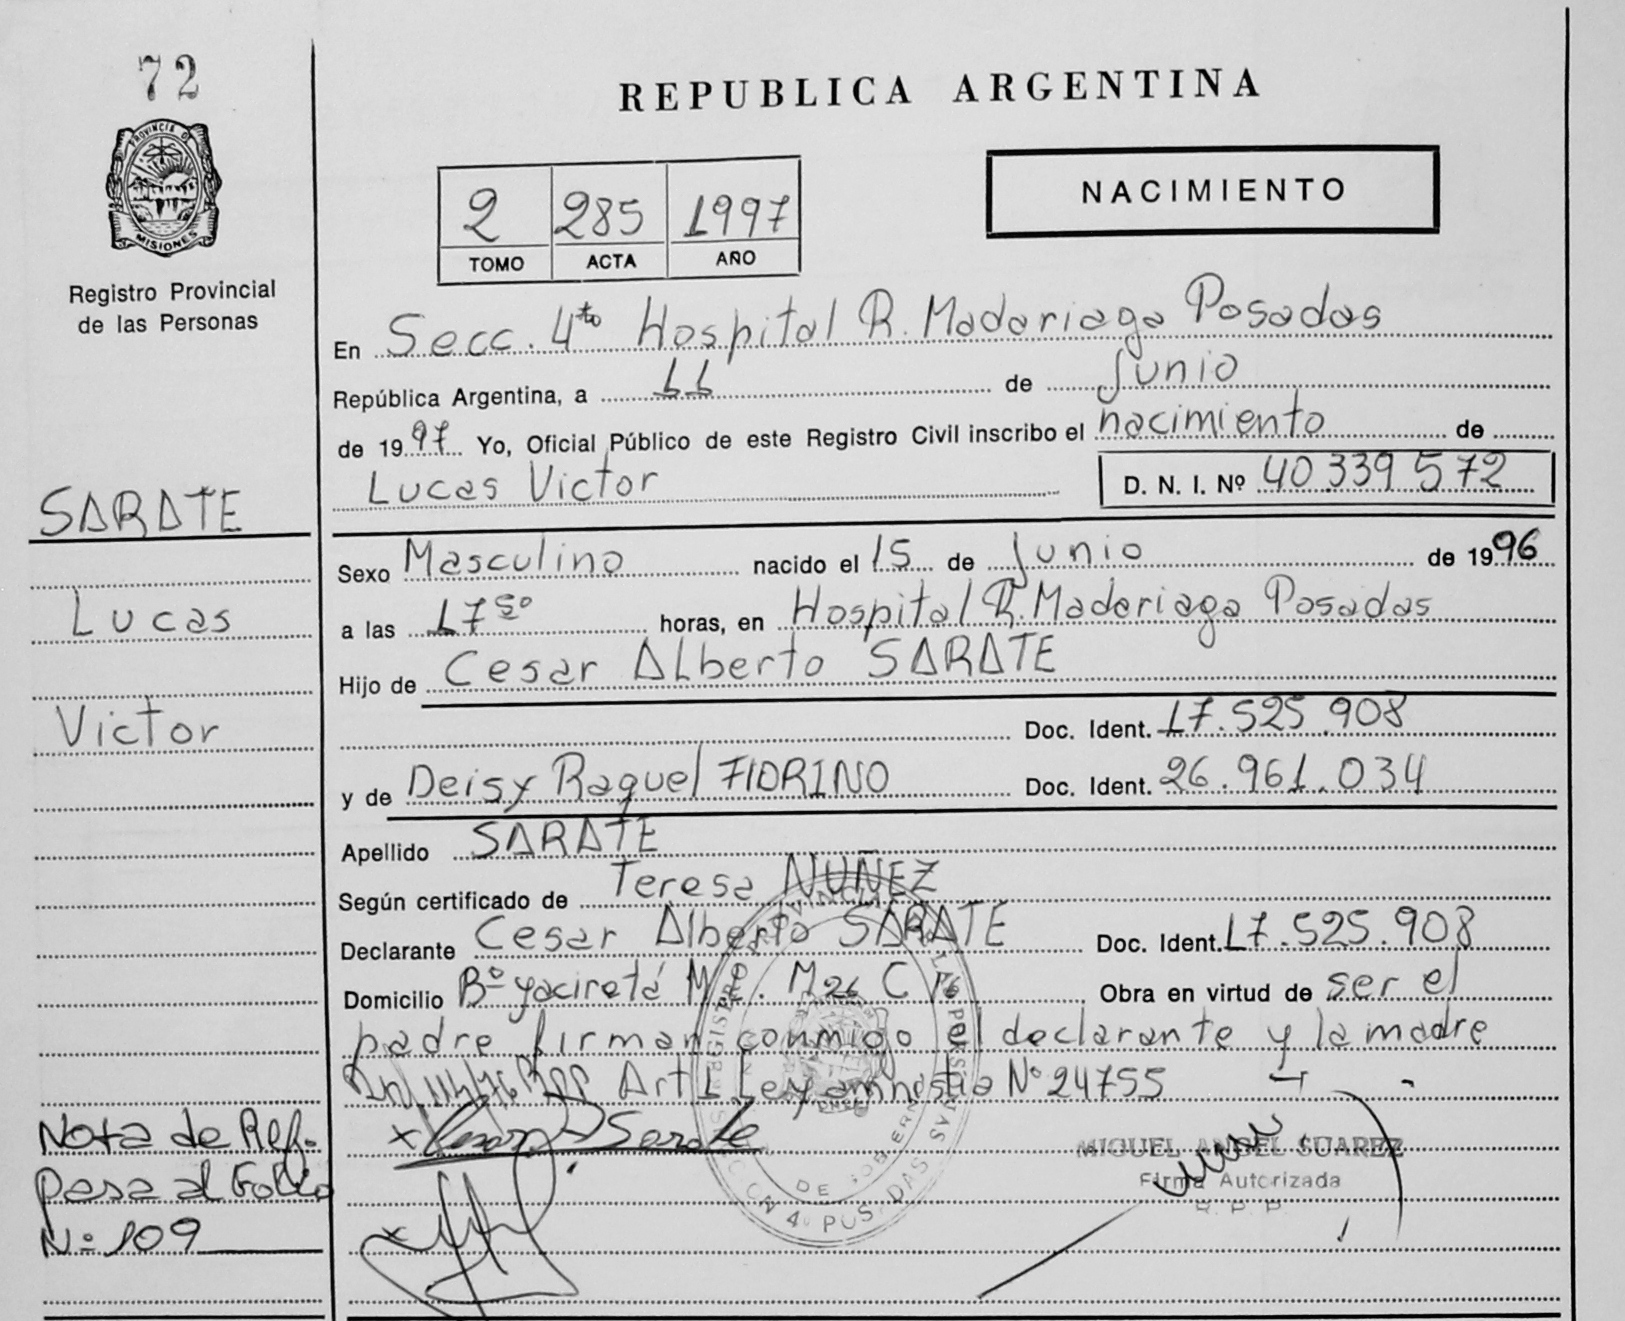 72
PROVINCIA DE
MISIONES
Registro Provincial
de las Personas
REPUBLICA ARGENTINA
2 285 1997
TOMO ACTA AÑO
NACIMIENTO
En Secc. 4to Hospital R. Madariaga Posadas
República Argentina, a 11 de Junio
de 1997 Yo, Oficial Público de este Registro Civil inscribo el nacimiento de
Lucas Victor D. N. I. Nº 40 339 572
SARATE
Sexo Masculino nacido el 15 de Junio de 1996
Lucas
a las 17 50 horas, en Hospital R. Madariaga Posadas
Hijo de Cesar Alberto SARATE
Victor
Doc. Ident. 17.525.908
y de Deisy Raquel FIORINO Doc. Ident. 26.961.034
Apellido SARATE
Según certificado de Teresa NUÑEZ
Declarante Cesar Alberto SARATE Doc. Ident. 17.525.908
Domicilio Bº Yaciretá M26 C Obra en virtud de ser el
padre firman conmigo el declarante y la madre
Art 1 Ley amnistia Nº 24755
Nota de Ref.
pasa al Folio
Nº 109
x Sarate
MIGUEL ANGEL SUAREZ
Firma Autorizada
R. P. P.
x